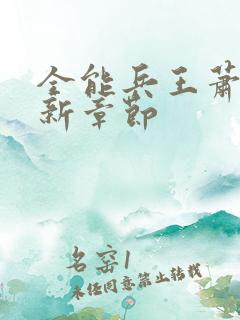 全能兵王萧
新章节
名窑1
未经同意禁止转载